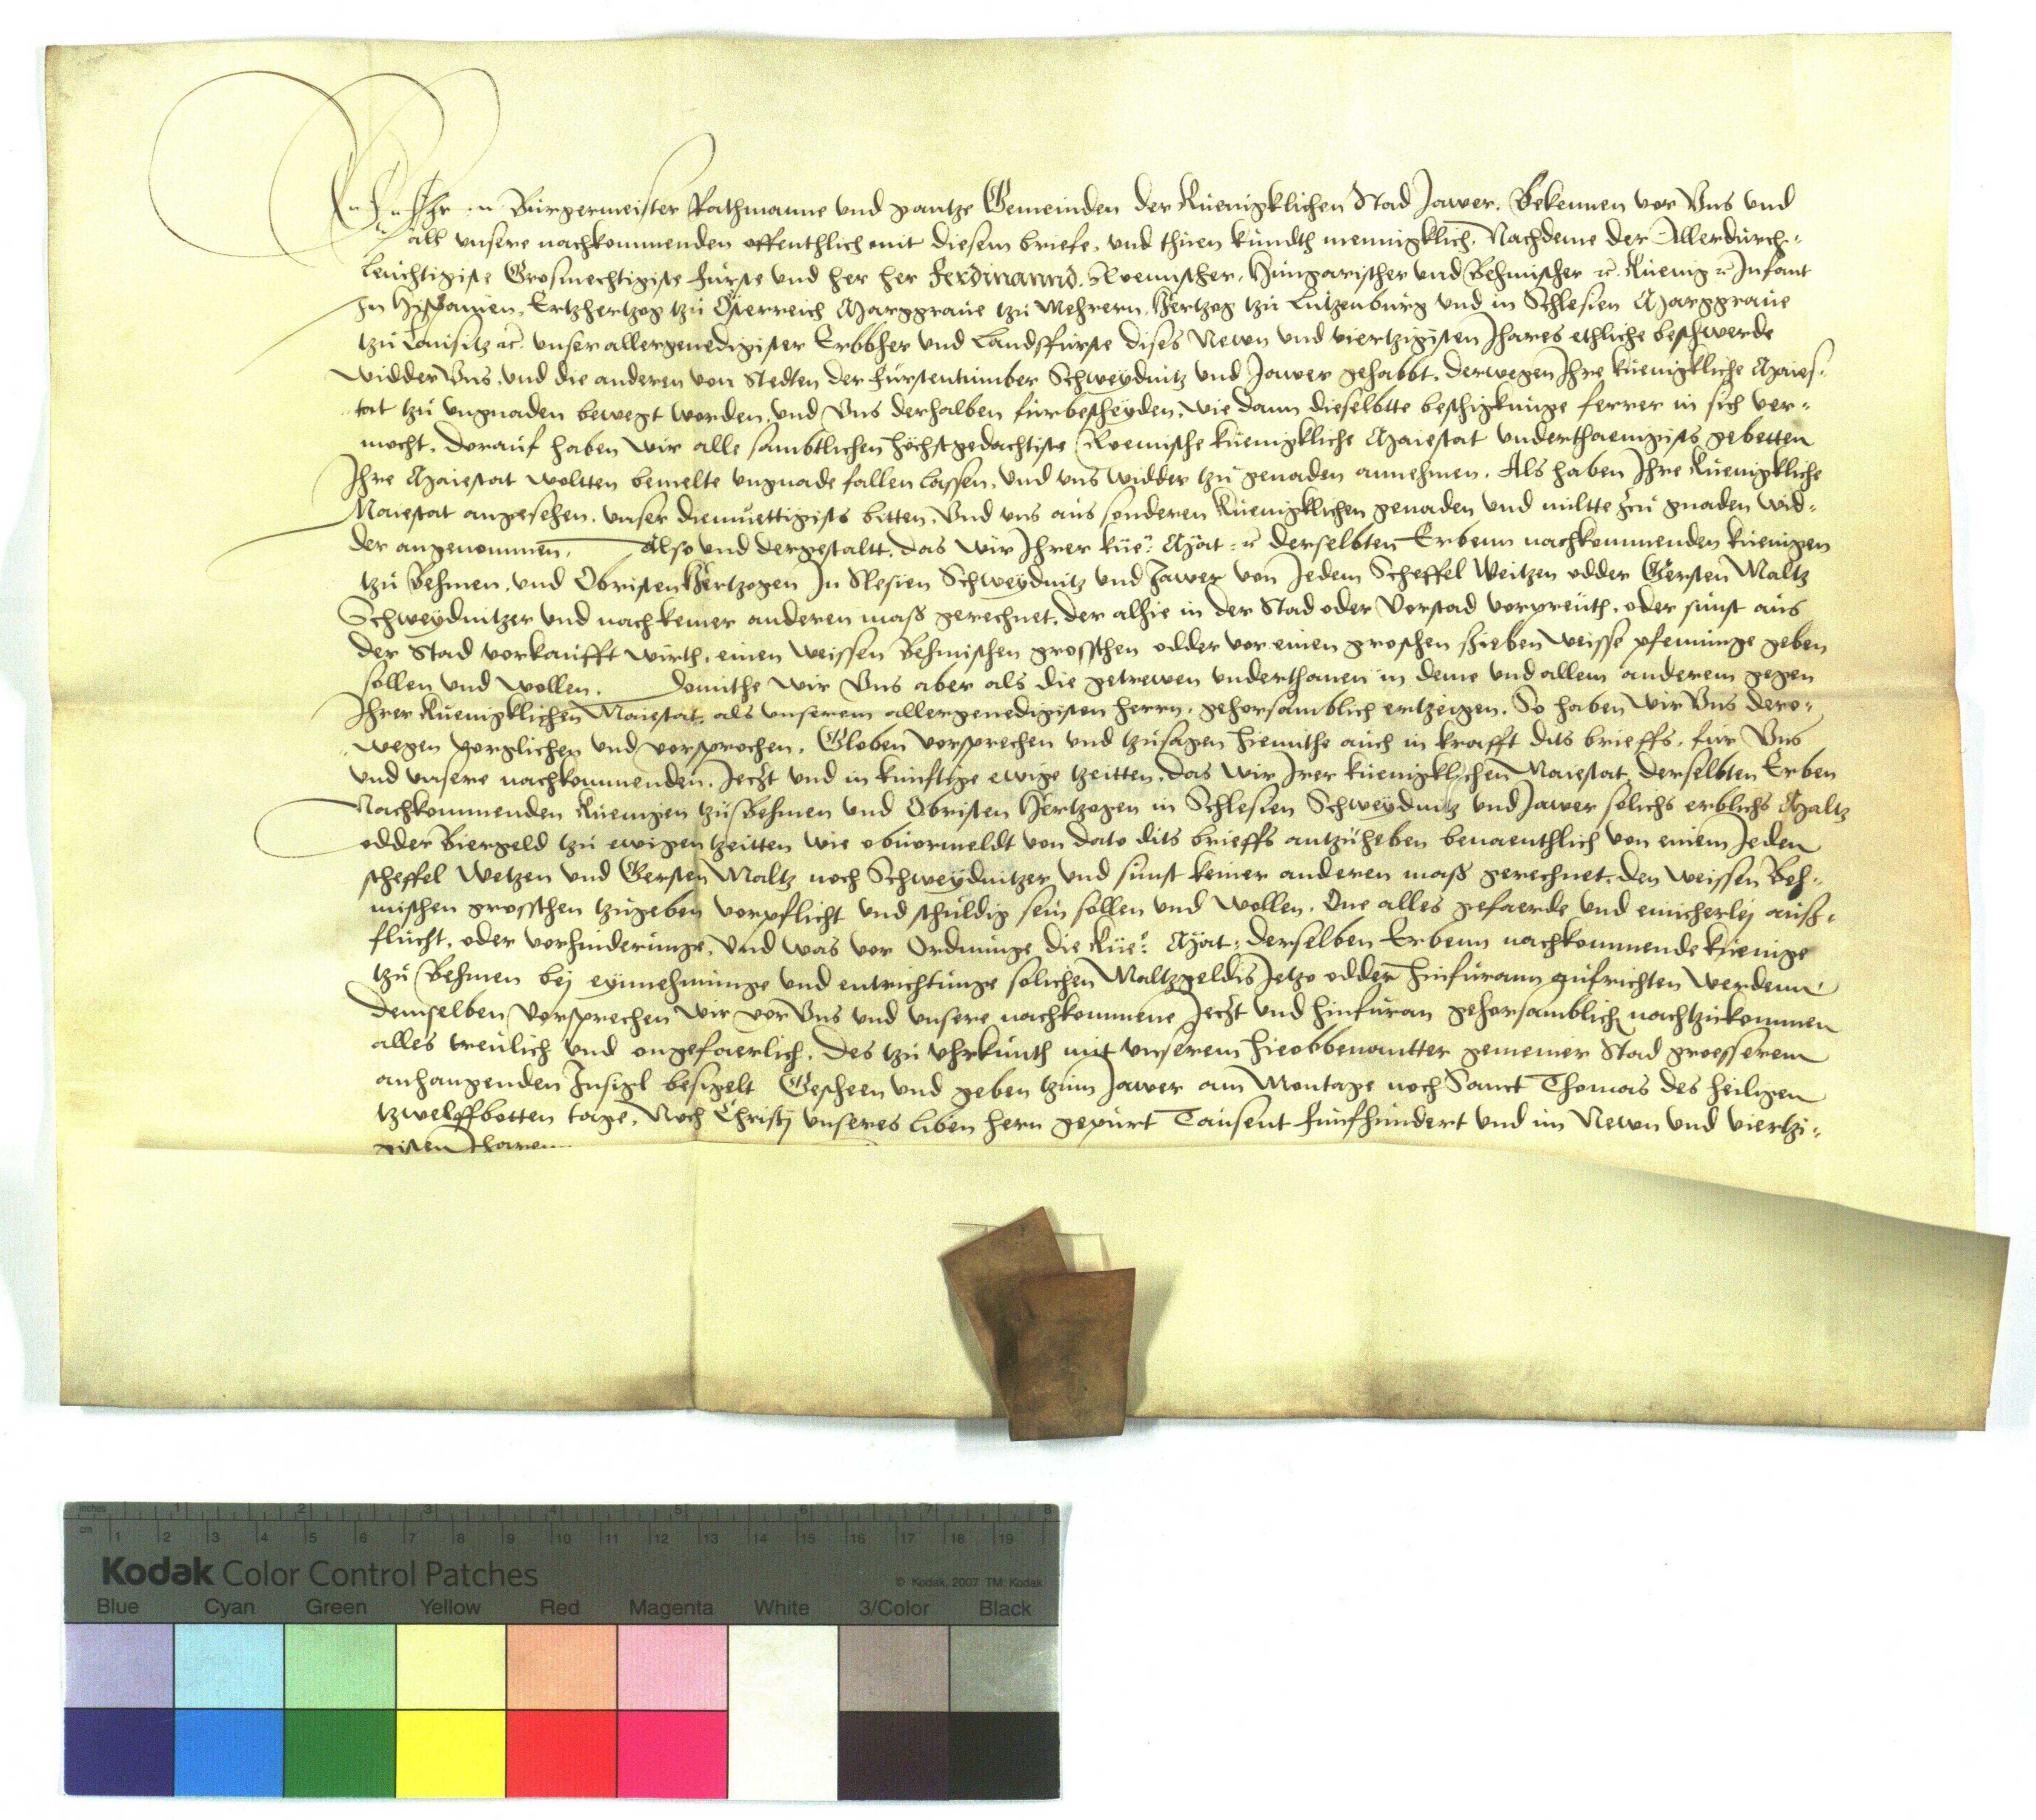 Wir Burgermeister Rathmanne und gantze Gemeinden der Kuenigklichen Stad Jawer. Bekennen vor Uns und
all unsere nachkommenden offenthlich mit diesem briefe, und thuen kundth mennigklich. Nachdeme der Allerdurch-
leuchtigiste Grosmechtigiste furste und her her Ferdinannd. Roemischer, Hungarischer und Behmischer ec. Kuenig ec Infant
In Hispanien, Ertzhertzog tzu Osterreich Marggraue tzu Mehrern, Hertzog tzu Lutzenburg und in Schlesien Marggraue
tzu Lausitz ec. unser allergenedigister Erbher und Landsfurste dises Newn und viertzigisten Jhares ethliche beschwerde
widder Uns, und die anderen von Stedten der furstentumber Schweydnitz und Jawer gehabbt, derwegen Ihre kuenigkliche Maies-
tat tzu ungnaden bewegt worden, und Uns derhalben furbescheyden, wie dann dieselbtte beschigkunge ferrer in sich ver-
mocht, dorauf haben wir alle sambtlichen hochstgedachtiste Roemische kuenigkliche Maiestat underthaenigists gebetten
Ihre Maiestat woltten bemelte ungnade fallen lassen, und uns widder tzu genaden annehmen. Als haben Ihre Kuenigkliche
Maiestat angesehen, unser diemuettigists bitten, Und uns aus sonderen Kuenigklichen genaden und miltte zcu gnaden wid-
der angenommen. Also und dergestaltt, das wir Ihrer kue: Mat: ec derselbten Erbenn nachkommenden kuenigen
tzu Behmen, und Obristen Hertzogen In Slesien Schweydnitz und Jawer von Jedem Scheffel Weitzen odder Gersten Maltz
Schweydnitzer und nach kemer anderen maß gerechnet, der alhie in der Stad oder Vorstad vorpreuth, oder sunst aus
der Stad vorkaufft wirth, einen weissen Behmischen grosschen odder vor einen groschen sieben weisse pfenninge geben
sollen und wollen. Domithe wir Uns aber als die getrewen underthanen in deme und allem anderem gegen
Ihrer Kuenigklichen Maiestat, als unserem allergenedigisten herrn, gehorsamblich ertzeigen. So haben wir Uns dero-
wegen vorglichen und vorsprochen. Globen vorsprechen und tzusagen hiemithe auch in krafft dits brieffs, fur Uns
und unsere nachkommenden, Jeczt und in kunftige ewige tzeitten, das wir Irer kuenigklichen Maiestat, derselbten Erben
Nachkommenden Kuenigen tzu Behmen und Obristen Hertzogen in Schlesien Schweydnitz und Jawer solichs erblichs Maltz
odder Biergeld tzu ewigen tzeitten wie obuormeldt von dato dits brieffs antzuheben benaenthlich von einem Jeden
scheffel Wetzen und Gersten Maltz noch Schweydnitzer und sunst keiner anderen maß gerechnet, den weissen Beh-
mischen grosschen tzugeben vorpflicht und schuldig sein sollen und wollen. One alles gefaerde und einicherley ausß-
flucht, oder vorhinderunge, Und was vor Ordnunge die Kue: Mat: derselben Erbenn nachkommende kuenige
tzu Behmen bey eynnehmunge und entrichtunge solichen Maltzgeldis Jetzo odder hinfurann aufrichten werdenn
demselben Vorsprechen wir vor Uns und unsere nachkommene Jeczt und hinfuran gehorsamblich nachtzukommen
alles treulich und ongefaerlich. Des tzu vhrkunth mit unserem hieobbenantter gemeiner Stad groesserem
anhangenden Insigl besigelt Gescheen und geben tzum Jawer am Montage noch Sanct Thomas des heiligen
tzwelffbotten tage, Noch Christj unseres liben hern gepurt Tausent funfhundert und im Newn und viertzi-
gisten Jharen
inches 1 2 3 4 5 6 7 8
cm 1 2 3 4 5 6 7 8 9 10 11 12 13 14 15 16 17 18 19
Kodak Color Control Patches
© Kodak, 2007 TM: Kodak
Blue Cyan Green Yellow Red Magenta White 3/Color Black